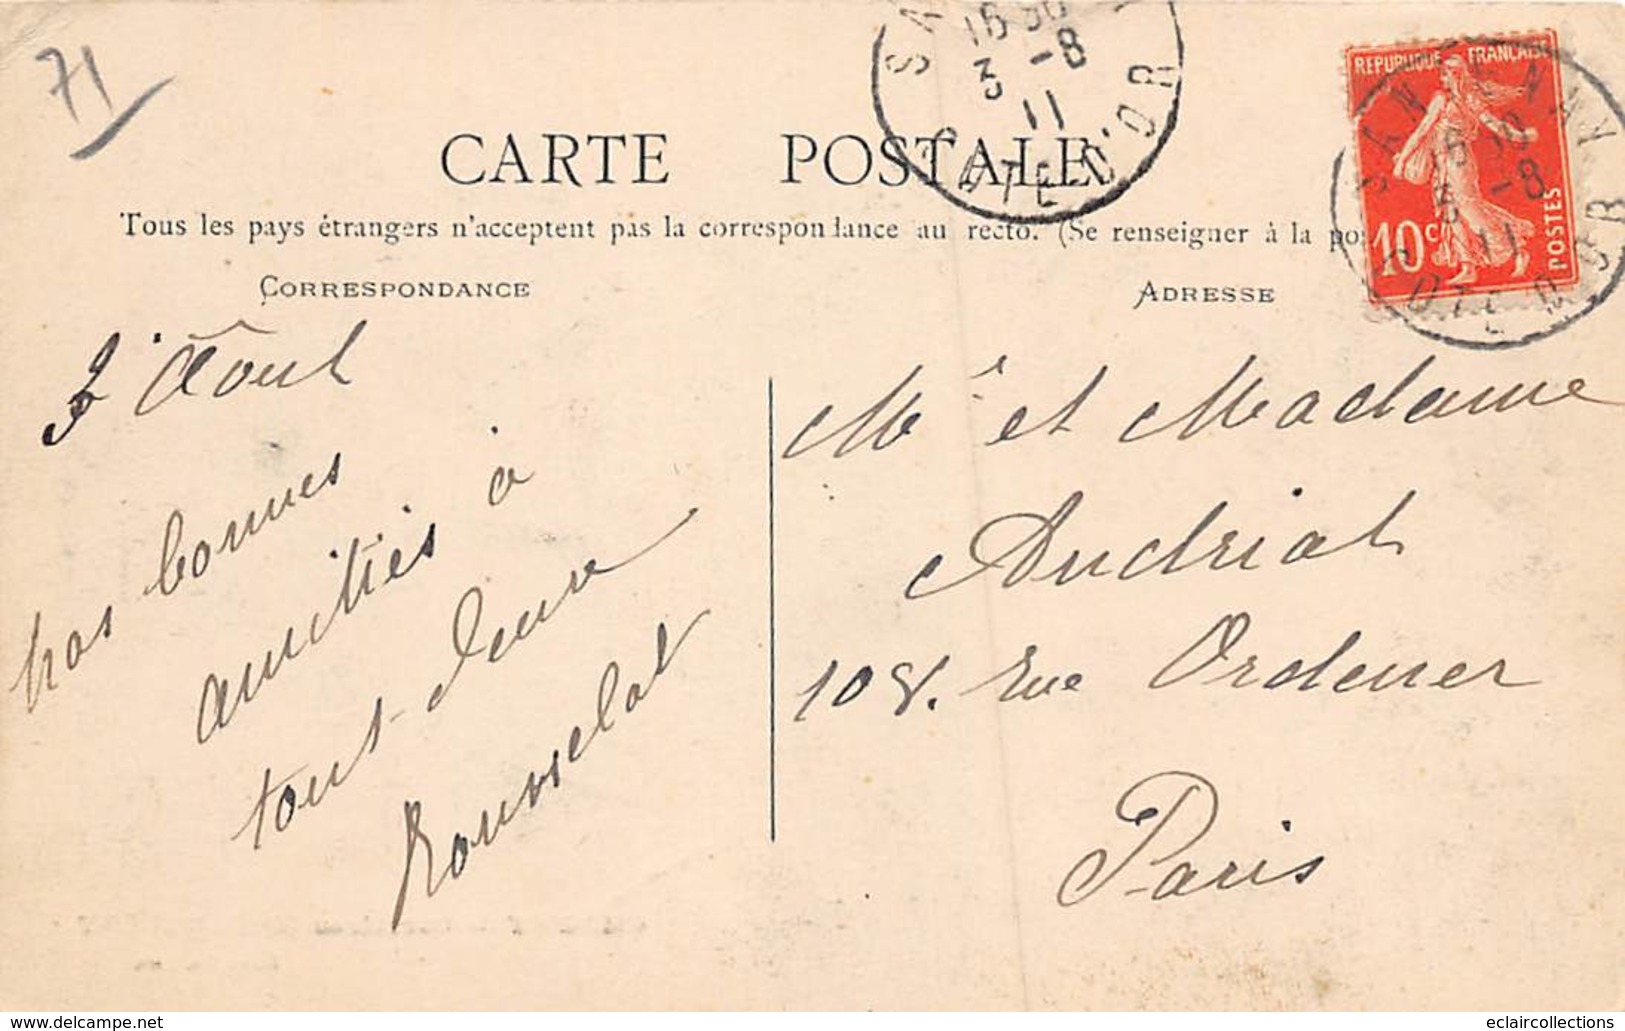 71
CARTE POSTALE
Tous les pays étrangers n'acceptent pas la correspondance au recto. (Se renseigner à la
CORRESPONDANCE
ADRESSE
REPUBLIQUE FRANCAISE
10c
POSTES
16 30
3 -8
11
COTE-D'OR
3 Août
nos bonnes
amitiés à
tous deux
Rousselot
Mr et Madame
Andriot
108. rue Ordener
Paris
eclaircollections
www.delcampe.net